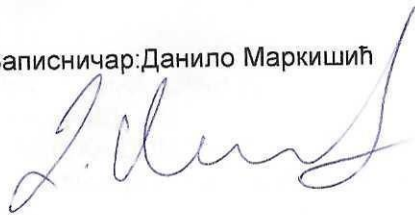 Записничар:Данило Маркишић